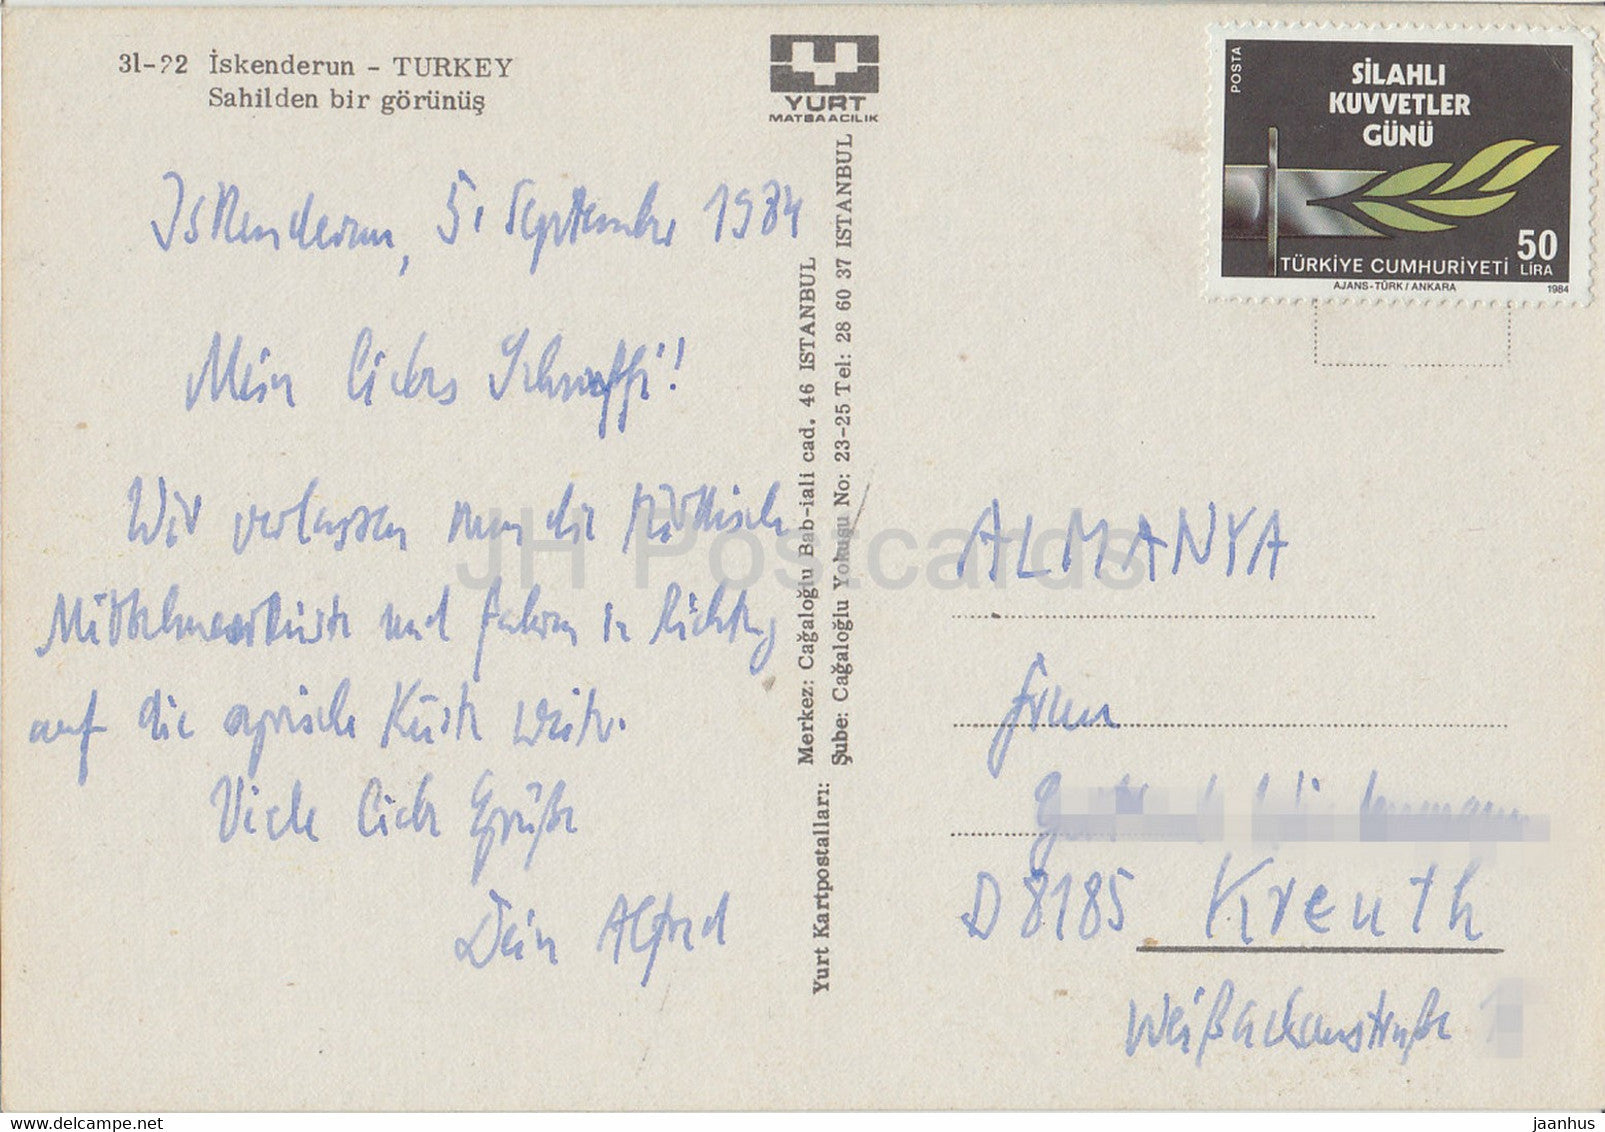 31-22 İskenderun - TURKEY
Sahilden bir görünüş
YURT
MATBAACILIK
POSTA
SİLAHLI
KUVVETLER
GÜNÜ
50
LİRA
TÜRKİYE CUMHURİYETİ
AJANS-TÜRK / ANKARA 1984
Iskenderun, 5. September 1984
Mein liebes Schnuffi!
Wir verlassen nun die türkische
Mittelmeerküste und fahren in Richtung
auf die syrische Küste weiter.
Viele liebe Grüße
Dein Alfred
Yurt Kartpostalları: Merkez: Cağaloğlu Bab-ıali cad. 46 ISTANBUL
Şube: Cağaloğlu Yokuşu No: 23-25 Tel: 28 60 37 ISTANBUL
ALMANYA
Frau
D 8185 Kreuth
Weißachaustraße 1
JH Postcards
delcampe.net
jaanhus